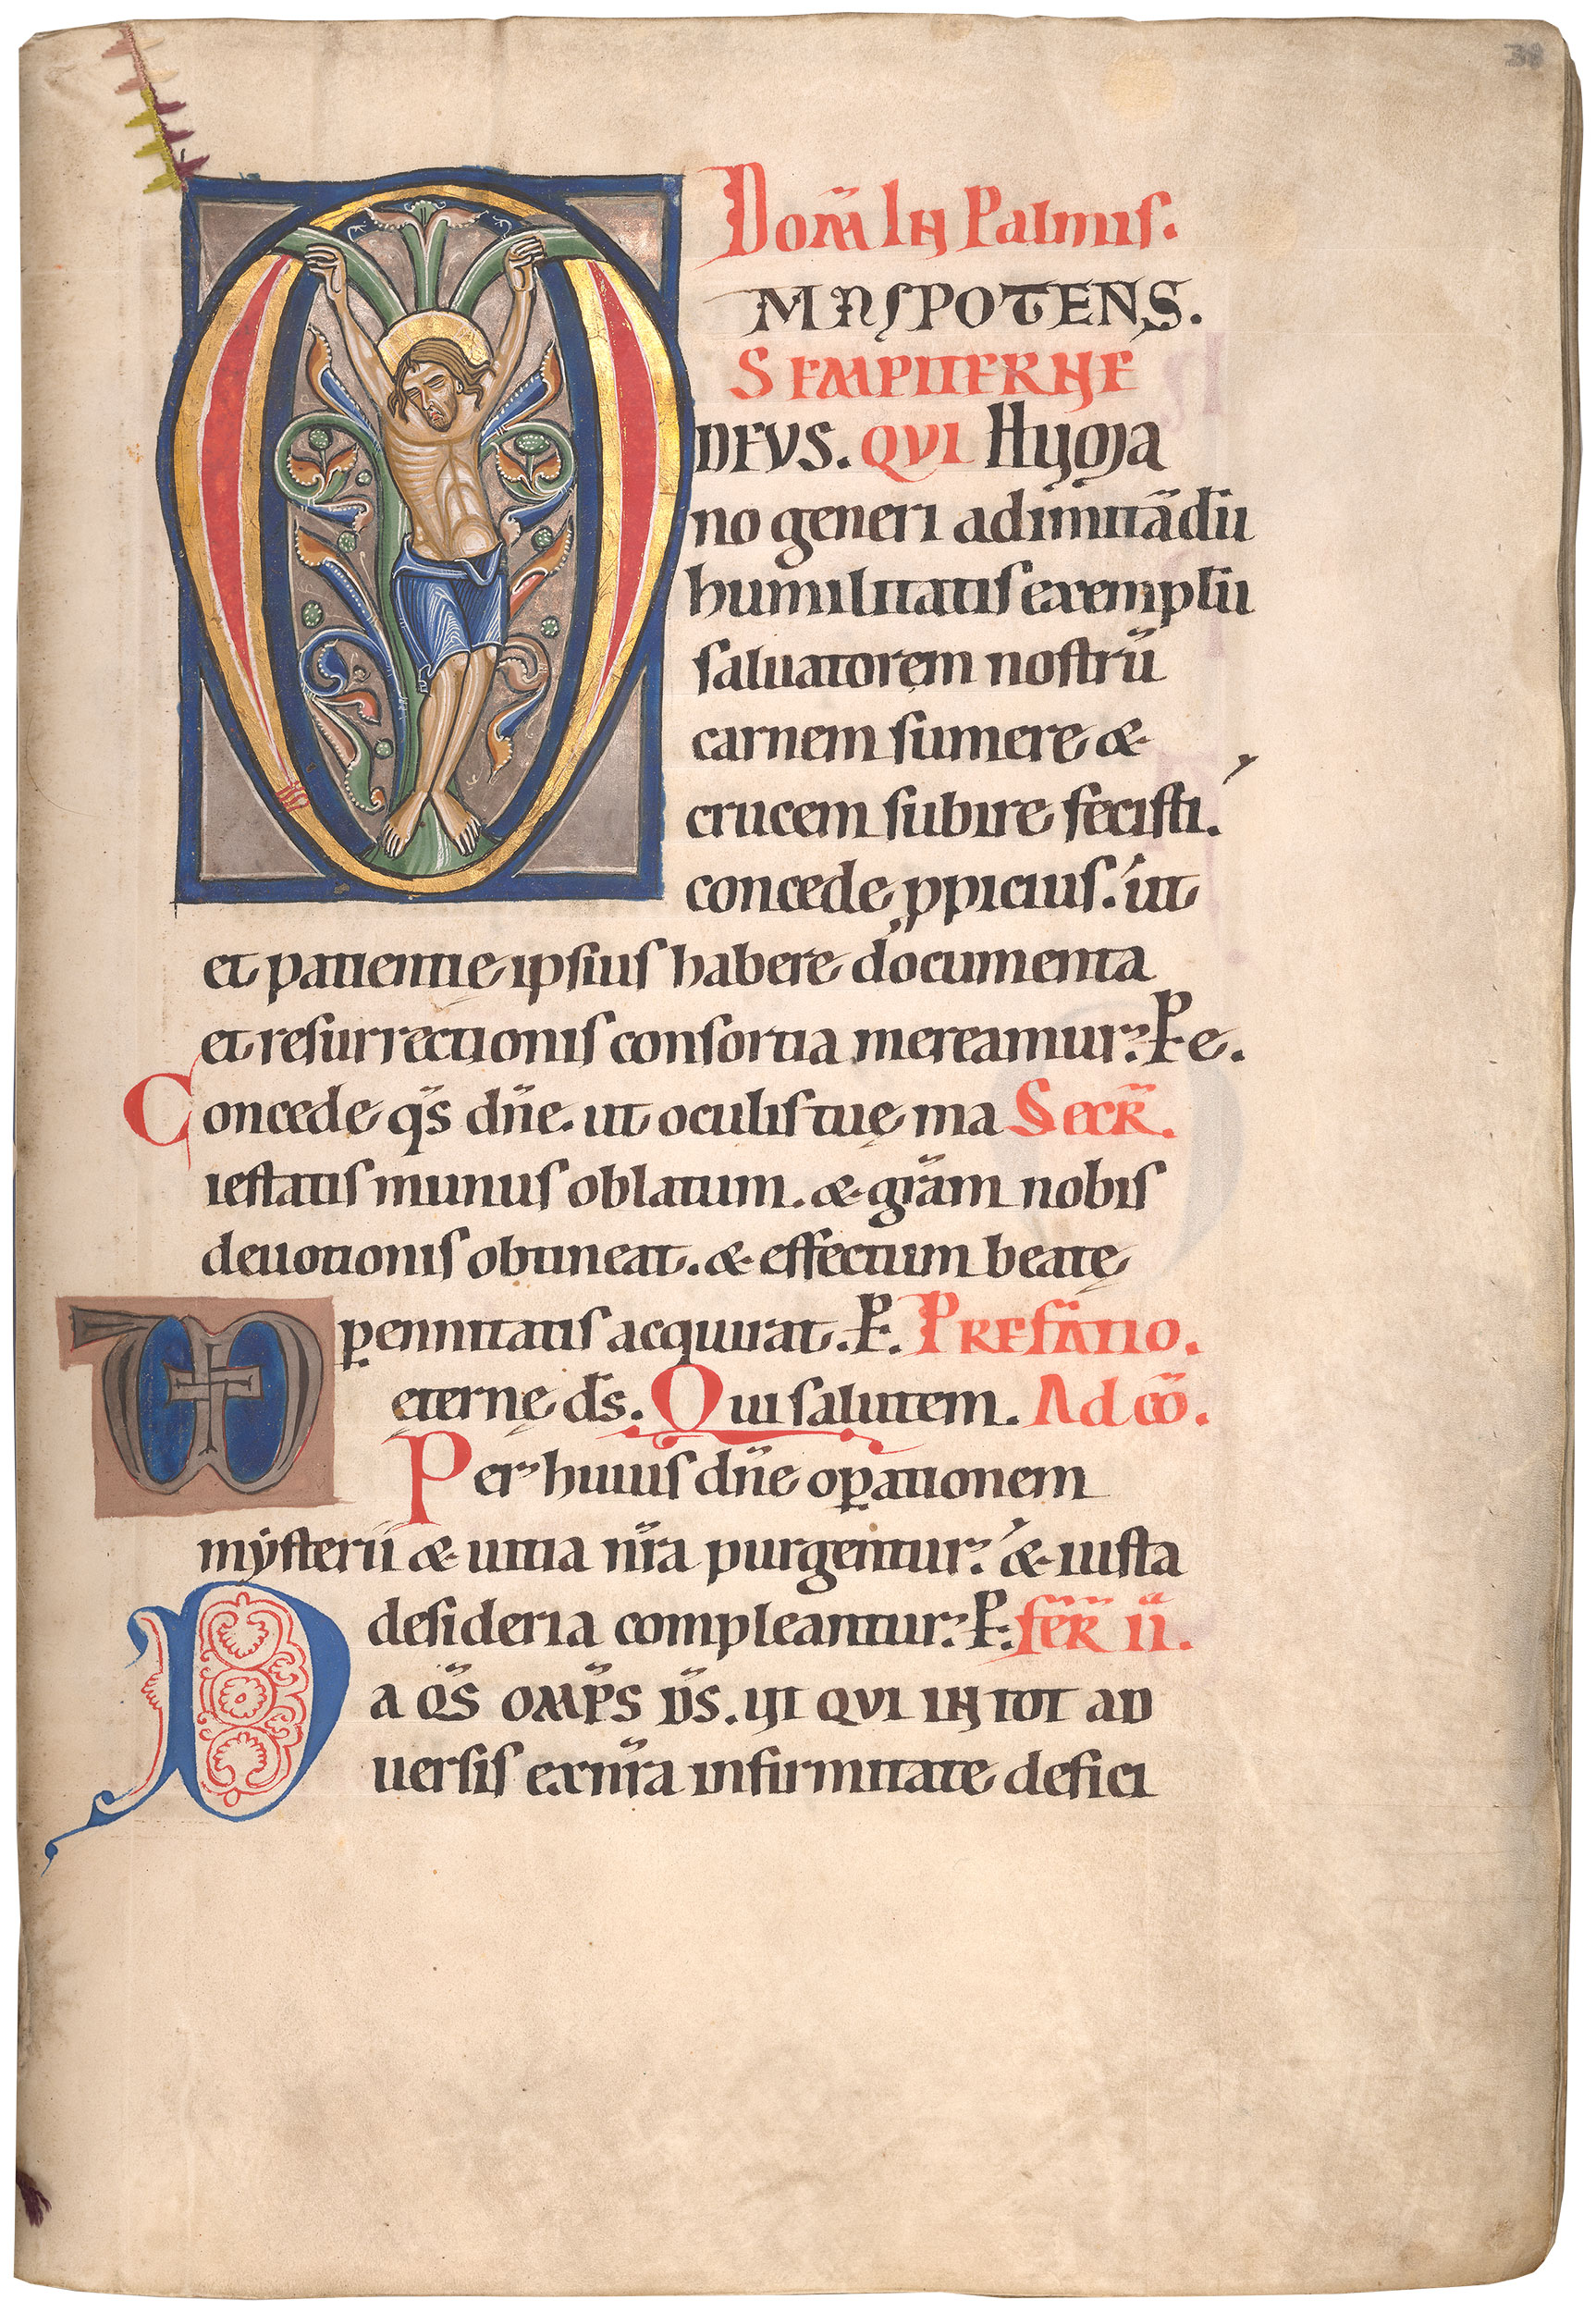 38
Dom̄ In Palmis.
OMNSPOTENS.
SEMPITERNE
DEVS. QVI Huma
no generi adimitādū
humilitatis exemplū
saluatorem nostrū
carnem sumere &
crucem subire fecisti.
concede ꝓpicius. ut
et patientię ipsius habere documenta
et resurrectionis consortia mereamur. P e.
Concede q̄s dn̄e. ut oculis tuę ma Secr̄.
iestatis munus oblatum. & grām nobis
deuotionis obtineat. & effectum beatę
ꝑennitatis acquirat. P. Prefatio.
VD eternę ds̄. Qui salutem. Ad cō.
Per huius dn̄e oꝑationem
mẏsterii & uitia nr̄a purgentur. & iusta
desideria compleantur. P. fer̄ ii.
Da q̄s om̄ps d̄s. ut qui in tot ad
uersis ex nr̄a infirmitate defici